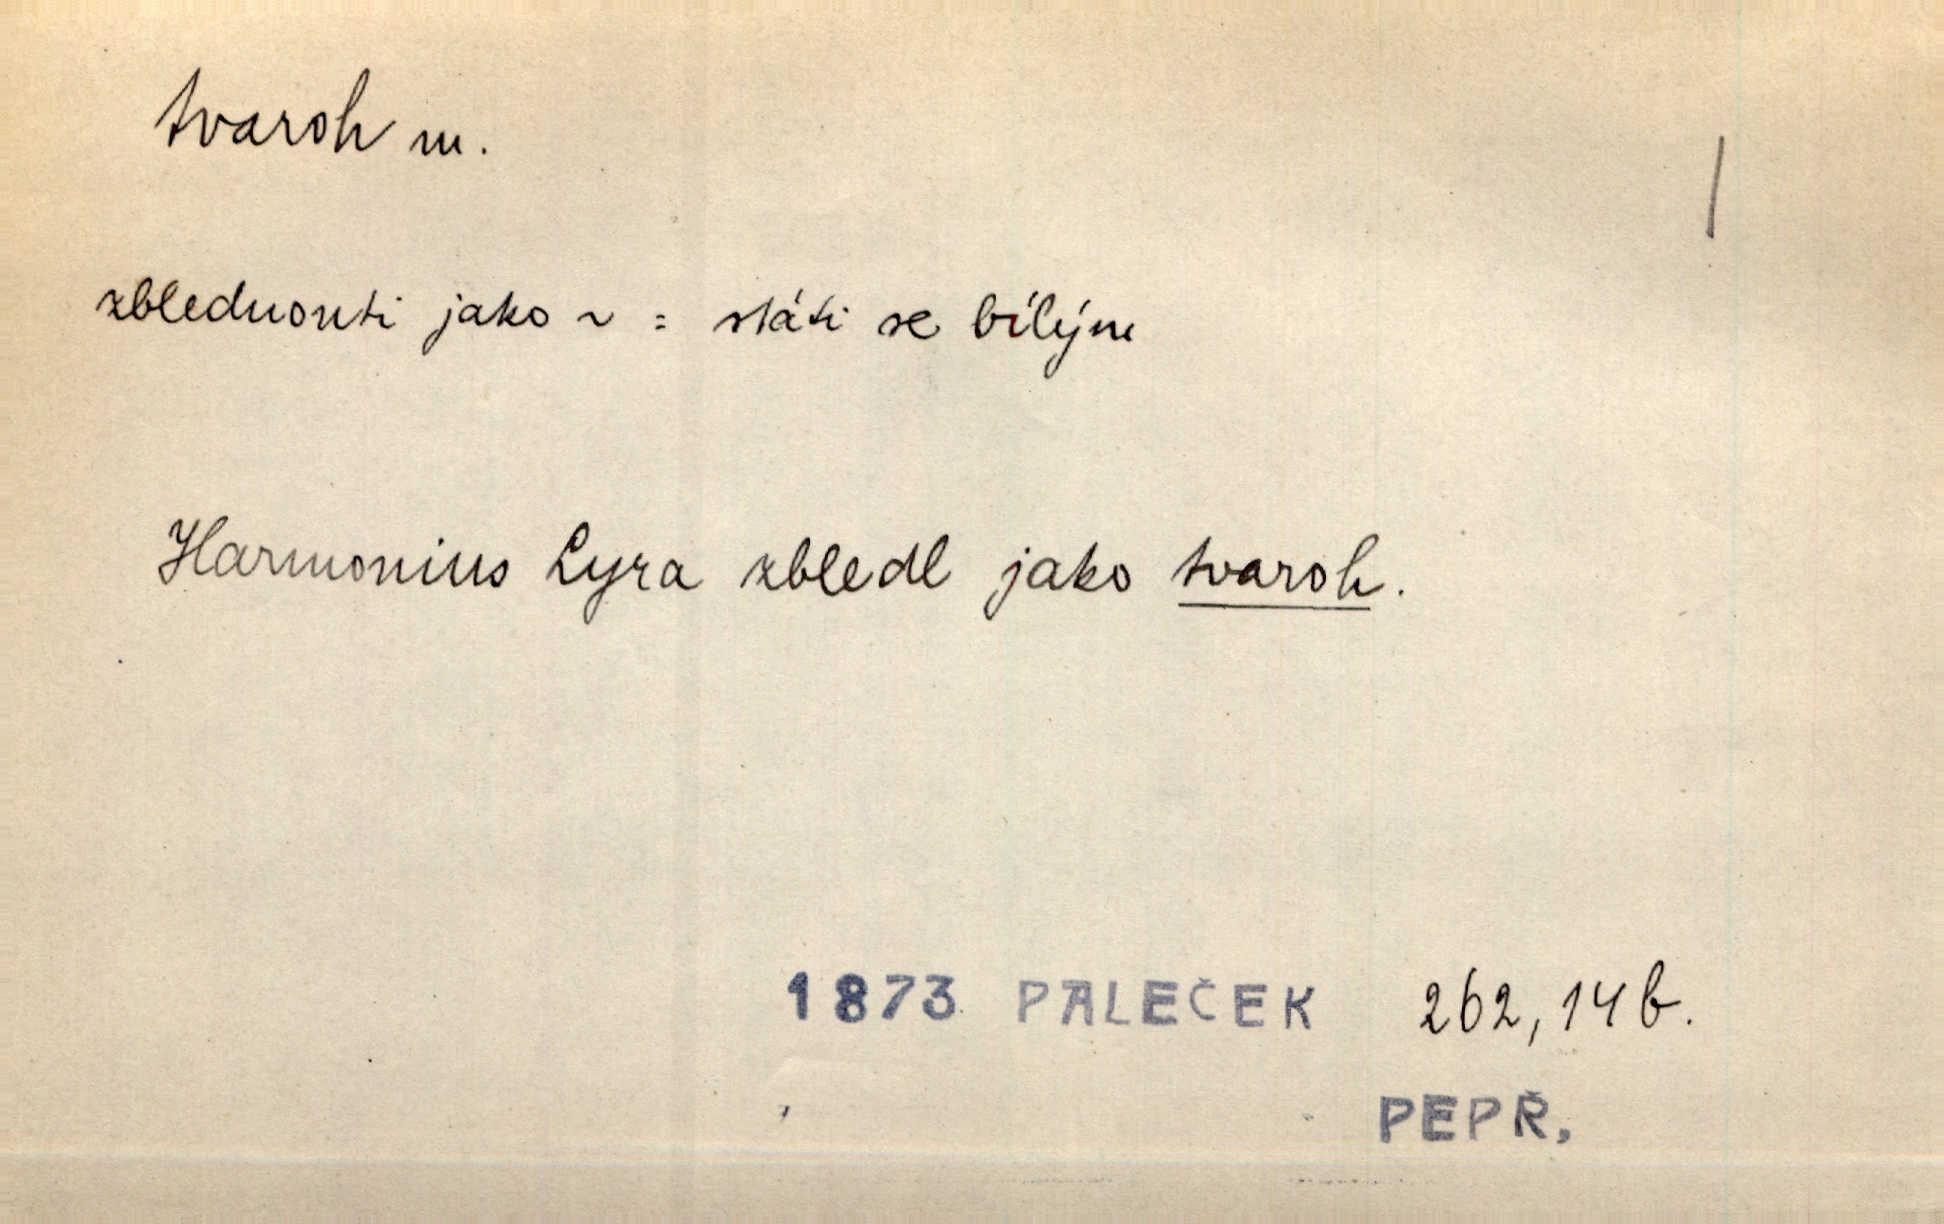 tvaroh m.
zblednouti jako ~ = státi se bílým
Harmonius Lyra zbledl jako tvaroh.
1873 PALEČEK 262, 14 b.
PEPŘ.